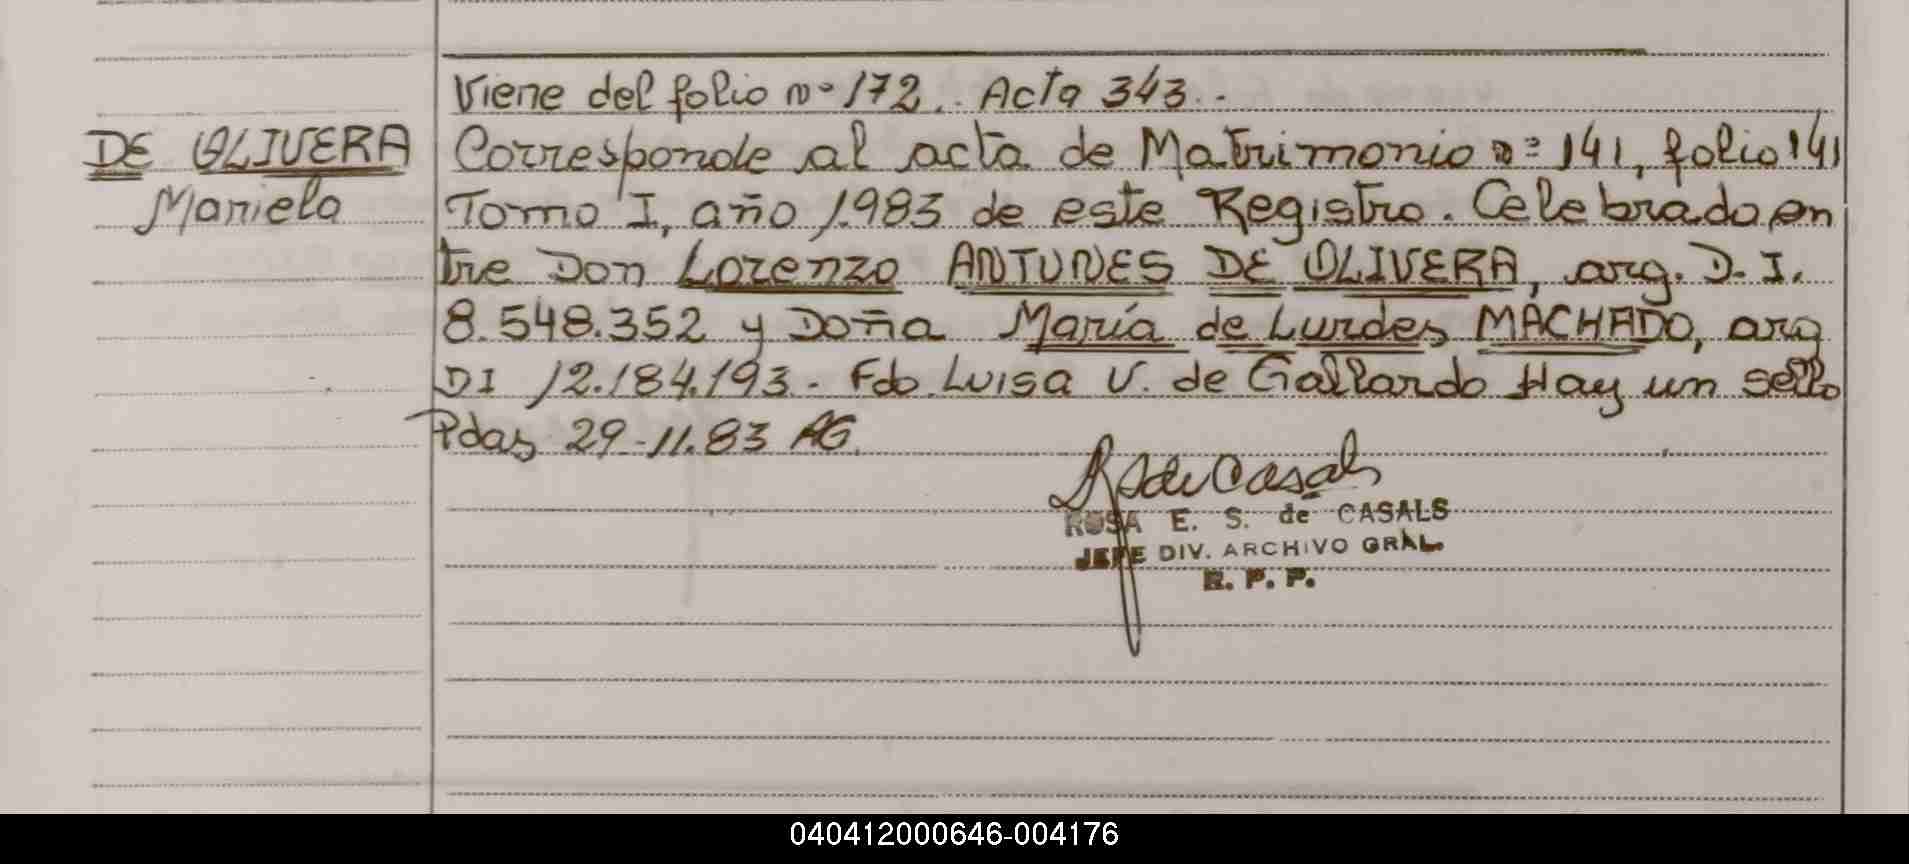 Viene del folio nº 172. Acta 343.-
DE OLIVERA
Mariela
Corresponde al acta de Matrimonio nº 141, folio 141
Tomo I, año 1.983 de este Registro. Celebrado en
tre Don Lorenzo ANTUNES DE OLIVERA, arg. D.I.
8.548.352 y Doña María de Lurdes MACHADO, arg
DI 12.184.193.- Fdo. Luisa V. de Gallardo Hay un sello
Pdas 29-11.83 AG.
ROSA E. S. de CASALS
JEFE DIV. ARCHIVO GRAL.
R. P. P.
040412000646-004176